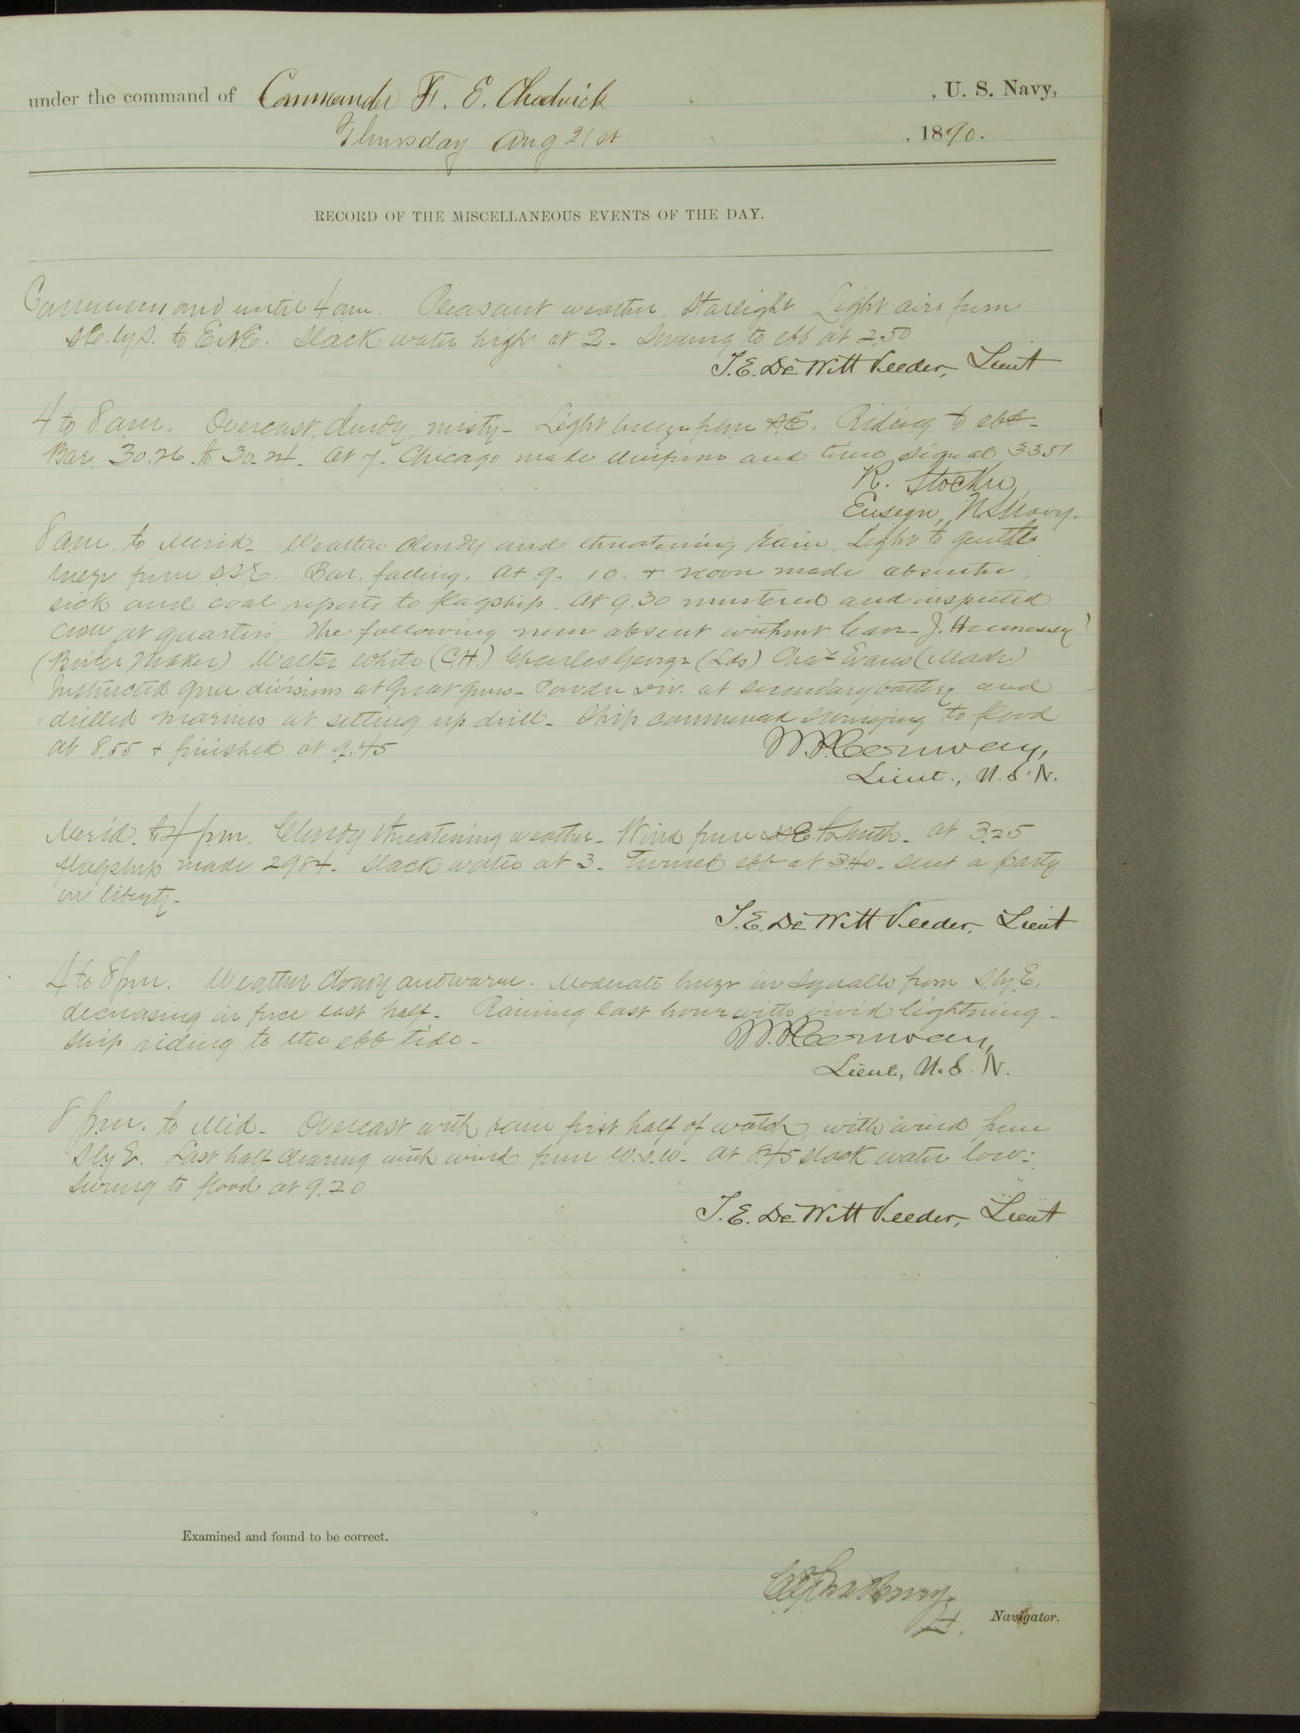 under the command of Commander F. E. Chadwick , U. S. Navy,
Thursday Aug 21st , 1890.
RECORD OF THE MISCELLANEOUS EVENTS OF THE DAY.
and until 4 am. Pleasant weather. Starlight. Light airs from
SE. by S. to ENE. Slack water high at 2 - Swung to ebb at 2.50
T. E. De Witt Veeder, Lieut
4 to 8 am. Overcast, cloudy, misty - Light breeze from SE. Riding to ebb -
Bar. 30.26 to 30.24. At 7. Chicago made uniform and time signal 3351
R. Stocker,
Ensign, U.S. Navy.
8 am. to Merid - Weather cloudy and threatening rain. Light to gentle
breeze from SSE. Bar. falling. At 9. 10. + noon made absentee,
sick and coal reports to flagship. At 9.30 mustered and inspected
crew at quarters. The following men absent without leave - J. Hennessey
(Boiler Maker) Walter White (C.H.) Charles George (Lds) Chas Evans (Mach)
Instructed gun divisions at great guns - Powder Div. at secondary battery and
drilled marines at setting up drill - Ship commenced swinging to flood
at 8.55 + finished at 9.45
W. P. Conway,
Lieut., U. S. N.
Merid. to 4 pm. Cloudy threatening weather - Wind from SE to South - At 3.25
flagship made 2984 - Slack water at 3 - Turned ebb at 3.40 - Sent a party
on liberty -
T. E. De Witt Veeder, Lieut
4 to 8 pm. Weather cloudy and warm. Moderate breeze in squalls from S. by E.
decreasing in force last half - Raining last hour with vivid lightning -
Ship riding to the ebb tide -
W. P. Conway,
Lieut, U. S. N.
8 pm. to Mid - Overcast with rain first half of watch, with wind from
S by E. Last half clearing with wind from W.S.W. - At 8.45 slack water low -
Swung to flood at 9.20
T. E. De Witt Veeder, Lieut
Examined and found to be correct.
Navigator.